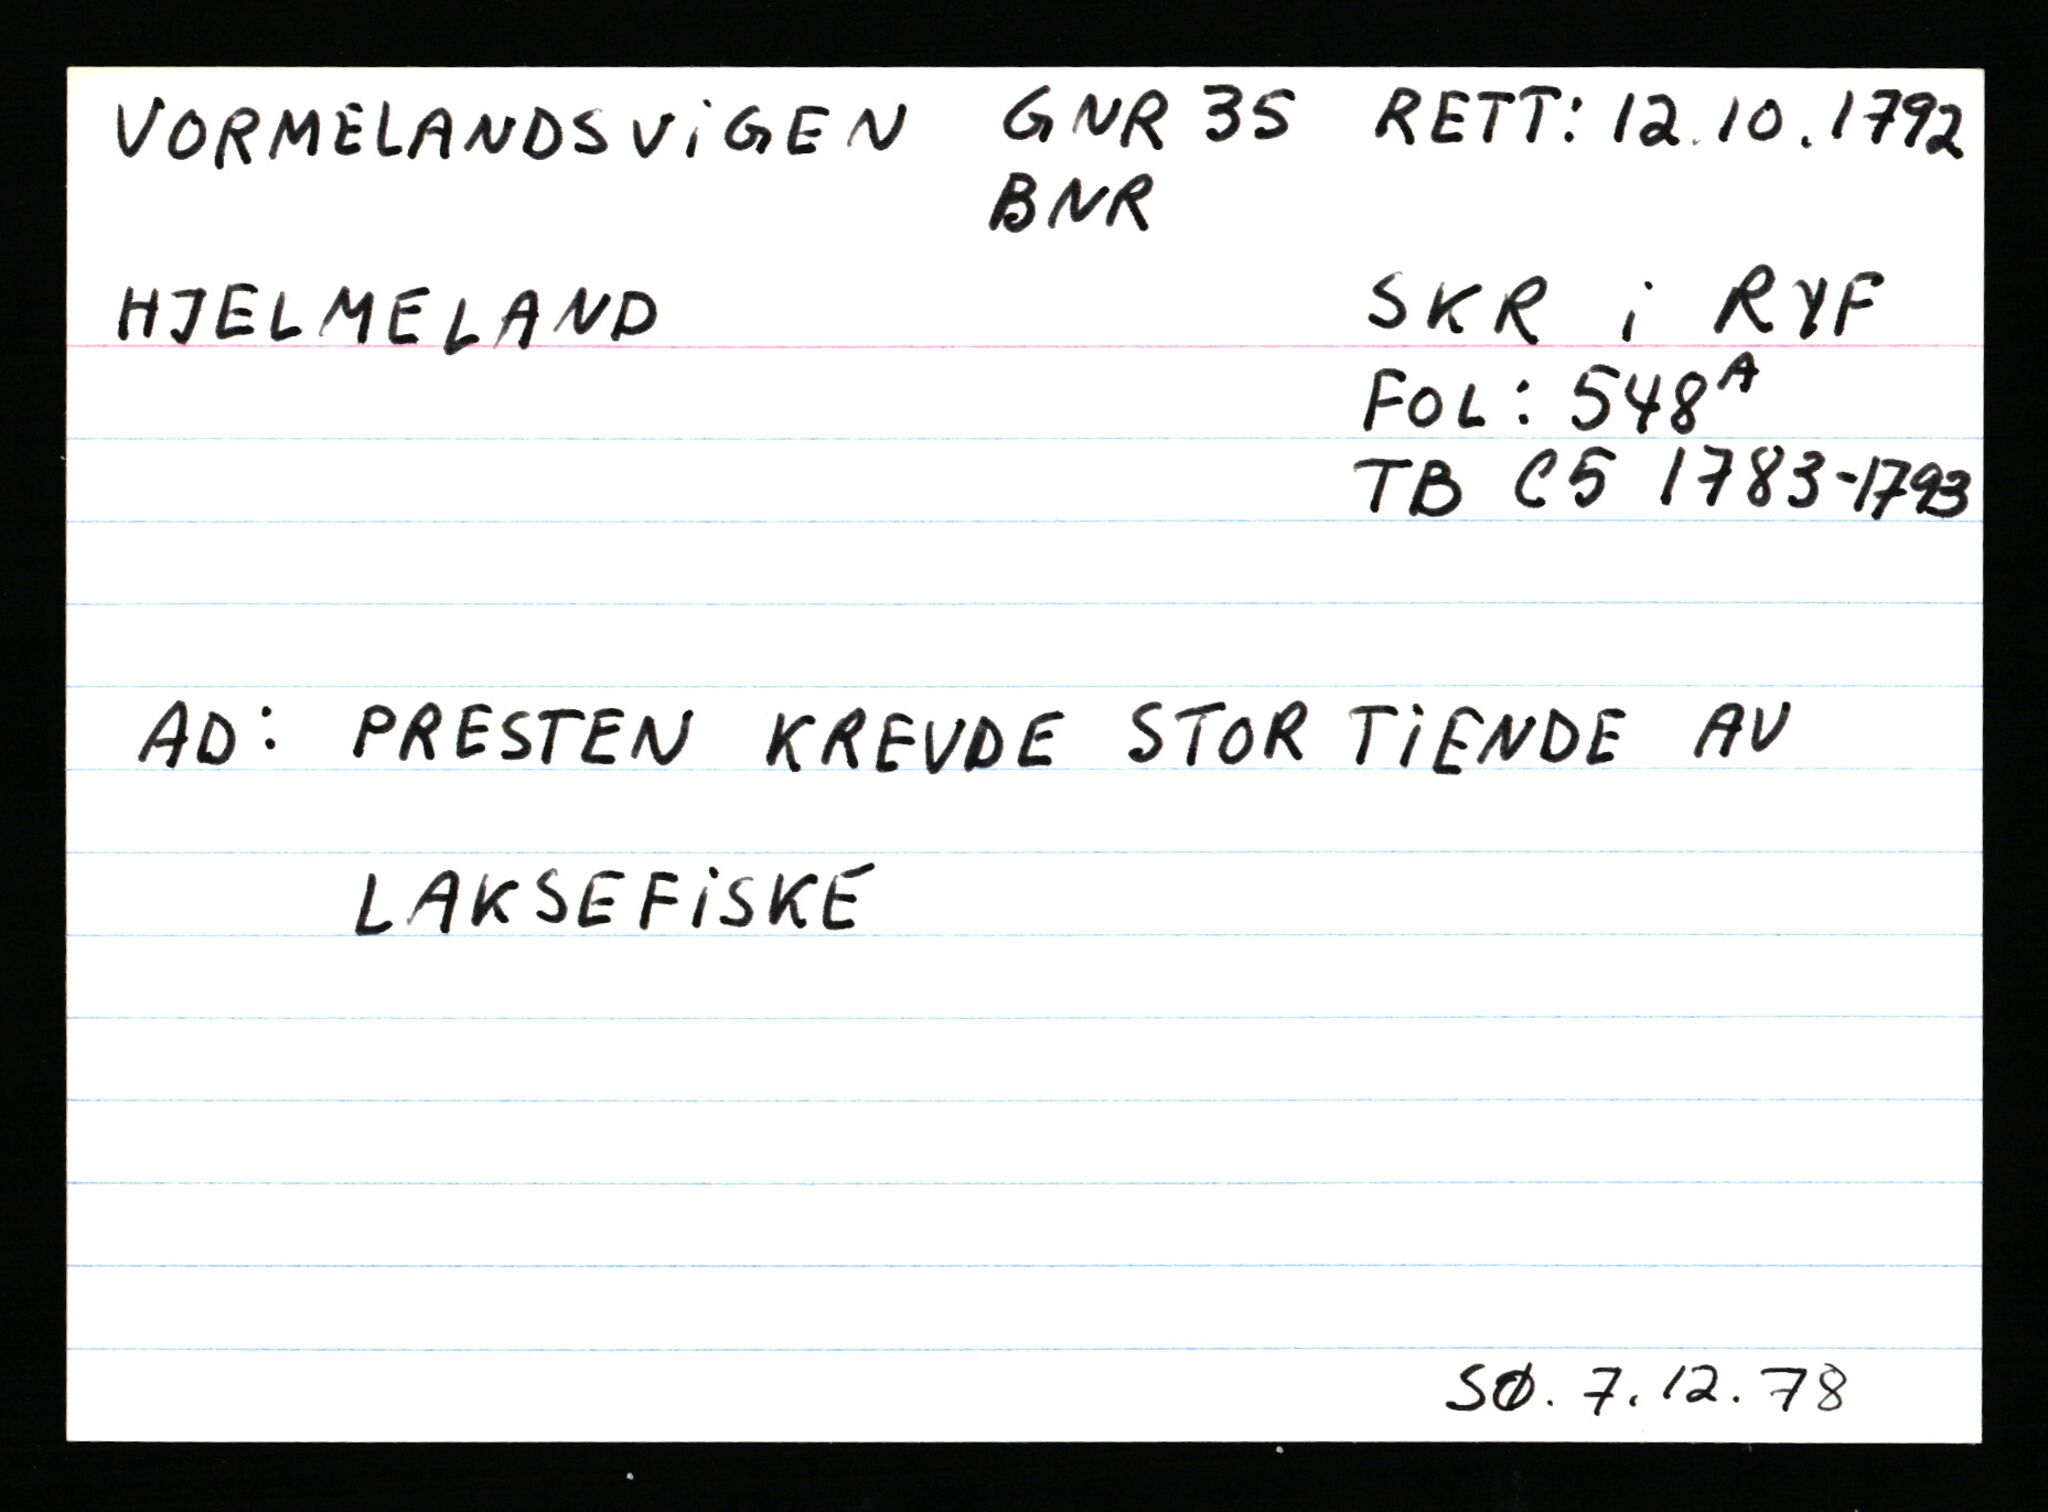 VORMELANDSViGEN GNR 35 RETT: 12.10.1792
BNR
HJELMELAND SKR i RYF
FOL: 548A
TB C5 1783-1793
AD: PRESTEN KREVDE STOR TiENDE AV
LAKSEFiSKE
SØ. 7.12.78